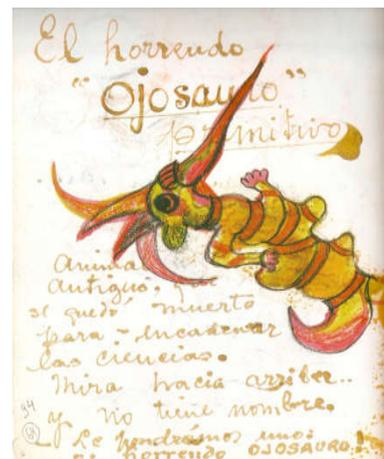 El horrendo
"Ojosauro"
primitivo
Anima
antiguo,
se quedó muerto
para encadenar
las ciencias.
Mira hacia arriba..
y no tiene nombre.
Le pondremos uno:
El horrendo OJOSAURO!
94